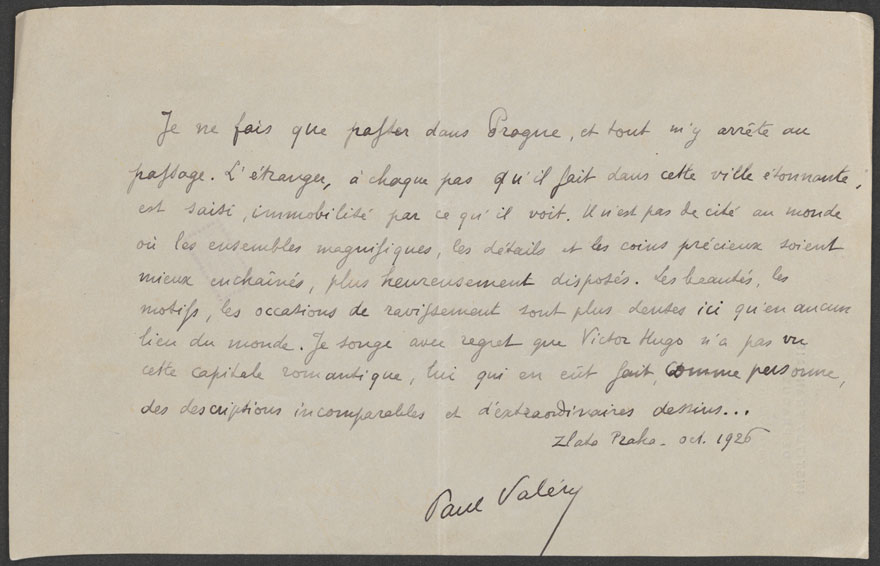 Je ne fais que passer dans Prague, et tout m'y arrête au
passage. L'étranger, à chaque pas qu'il fait dans cette ville étonnante,
est saisi, immobilisé par ce qu'il voit. Il n'est pas de cité au monde
où les ensembles magnifiques, les détails et les coins précieux soient
mieux enchaînés, plus heureusement disposés. Les beautés, les
motifs, les occasions de ravissement sont plus denses ici qu'en aucun
lieu du monde. Je songe avec regret que Victor Hugo n'a pas vu
cette capitale romantique, lui qui en eût fait, comme personne,
des descriptions incomparables et d'extraordinaires dessins...
Zlata Praha - oct. 1926
Paul Valéry